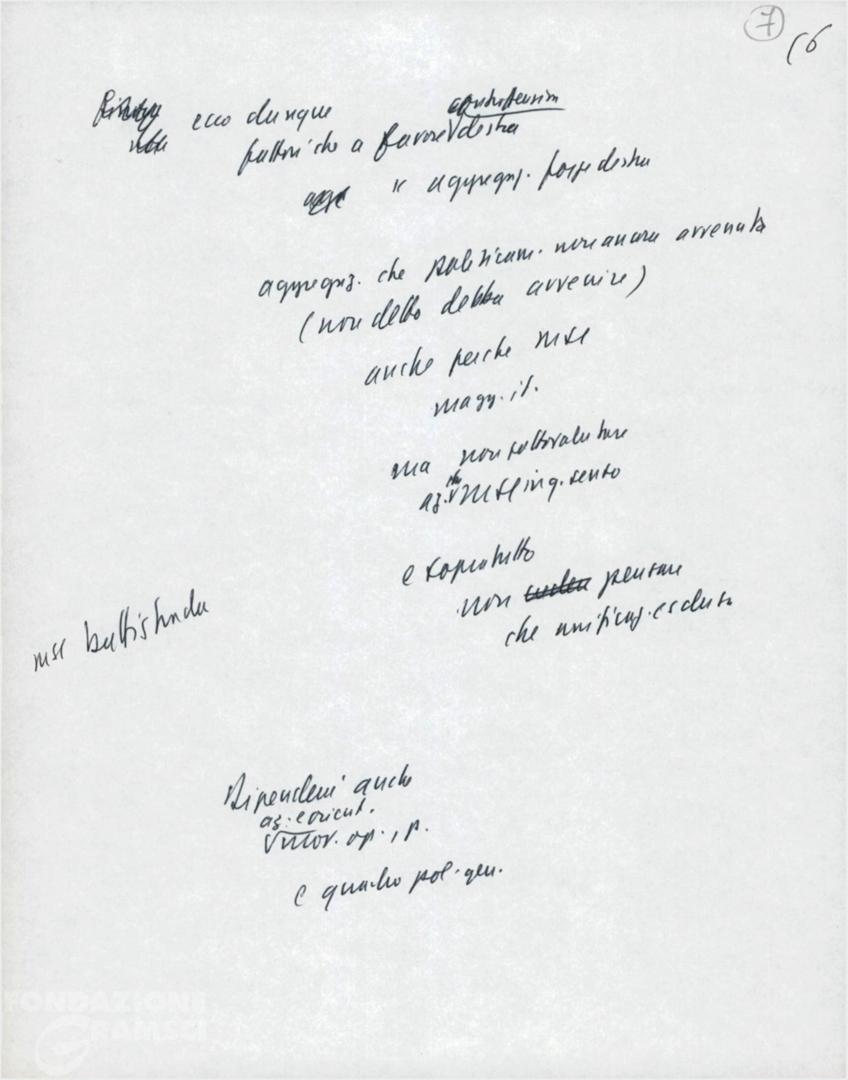 7
16
ecco dunque
fattori che a favore destra
e aggregaz. forze destra
aggregaz. che politicam. non ancora avvenuta
(non detto debba avvenire)
anche perche MSI
magg. it.
ma non sottovalutare
az. MSI in q. senso
e sopratutto
non pensare
che unificaz. esclusa
msi battistrada
Dipenderà anche
az. e orient.
mov. op., p.
e quadro pol. gen.
FONDAZIONE
GRAMSCI